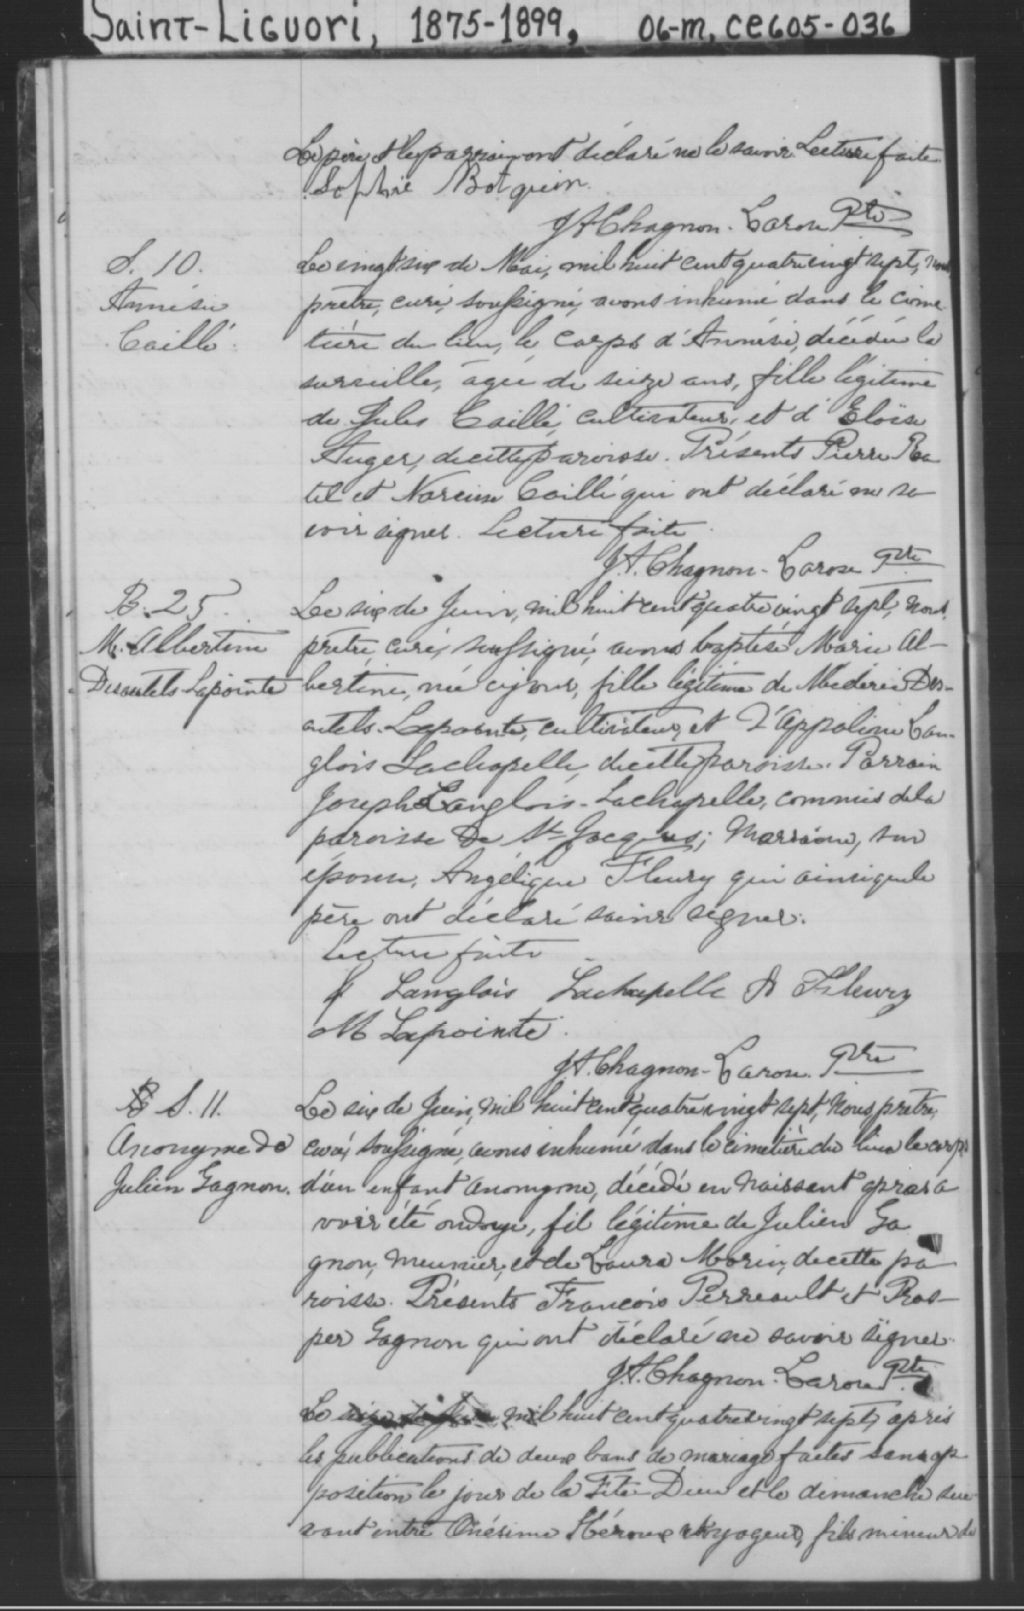 Saint-Liguori, 1875-1899, 06-m, ce605-036
Le père et le parrain ont déclaré ne le savoir. Lecture faite
Sophie Botquin
J A Chagnon-Larose Ptre
S. 10.
Le vingt six de Mai, mil huit cent quatrevingt sept, nous
Annésie
prêtre, curé, soussigné, avons inhumé dans le cime-
Caillé
tière du lieu, le corps d'Annésie, décédée la
surveille, âgée de seize ans, fille légitime
de Jules Caillé, cultivateur, et d'Eloïse
Auger, de cette paroisse. Présents Pierre Ra
tel et Narcisse Caillé qui ont déclaré ne sa
voir signer. Lecture faite
J. A. Chagnon-Larose Ptre
B. 25.
Le six de Juin, mil huit cent quatrevingt sept, Nous,
M. Albertine
prêtre, curé, soussigné, avons baptisé Marie Al-
Desautels Lapointe
bertine, née ce jour, fille légitime de Médéric Des-
autels-Lapointe, cultivateur, et d'Appoline Lan-
glois Lachapelle, de cette paroisse. Parrain
Joseph Langlois-Lachapelle, commis de la
paroisse de St Jacques; Marraine, son
épouse, Angélique Fleury qui ainsi que le
père ont déclaré savoir signer.
Lecture faite
J Langlois Lachapelle A Fleury
M Lapointe
J. A. Chagnon-Larose. Ptre
B S. 11.
Le six de Juin, mil huit cent quatrevingt sept, Nous, prêtre,
Anonyme de
curé, soussigné, avons inhumé dans le cimetière du lieu le corps
Julien Gagnon.
d'un enfant anonyme, décédé en naissant après a
voir été ondoyé, fil légitime de Julien Ga
gnon, meunier, et de Laura Morin, de cette pa
roisse. Présents François Perreault et Pros-
per Gagnon qui ont déclaré ne savoir signer.
J. A. Chagnon-Larose Ptre.
Le mil huit cent quatrevingt sept, après
les publications de deux bans de mariage faites sans op
position le jour de la Fête-Dieu et le dimanche sui
vant entre Onésime Héroux voyageur, fils mineur de